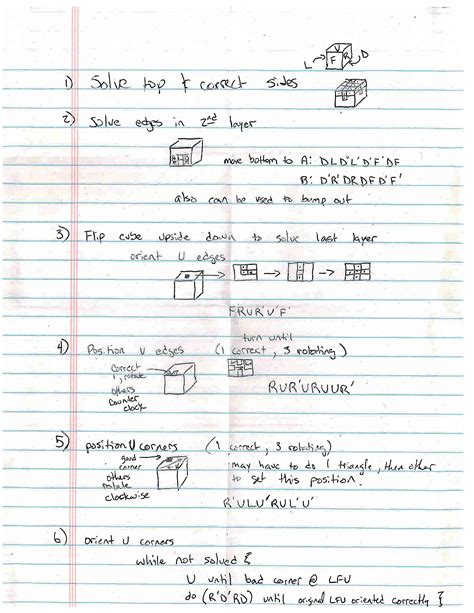 U
L F R D
1) Solve top & correct sides
2) Solve edges in 2nd layer
move bottom to A: DLD'L'D'F'DF
B: D'R'DRDFD'F'
also can be used to bump out
3) Flip cube upside down to solve last layer
orient U edges
FRUR'U'F'
4) Position U edges (turn until 1 correct, 3 rotating)
correct
1, rotate
others
counter
clock
RUR'URUUR'
5) position U corners (1 correct, 3 rotating)
good
corner
others
rotate
clockwise
may have to do 1 triangle, then other
to set this position.
R'ULU'RUL'U'
6) orient U corners
while not solved {
U until bad corner @ LFU
do (R'D'RD) until original LFU oriented correctly }